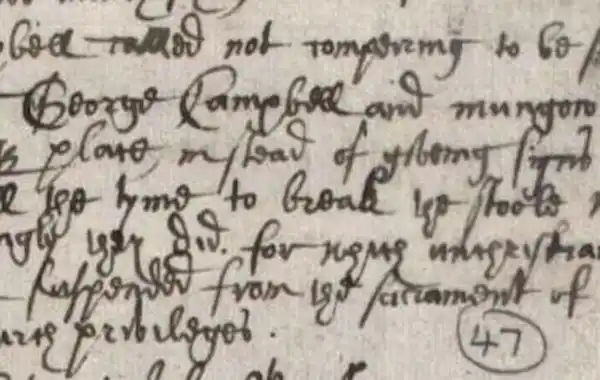 bell called not compearing to be
George Campbell and mungow
place, instead of giveing signs
ll the tyme to break the stoole
ngly they did. for which unchristia
suspended from the sacrament of
urch priviledges.
47